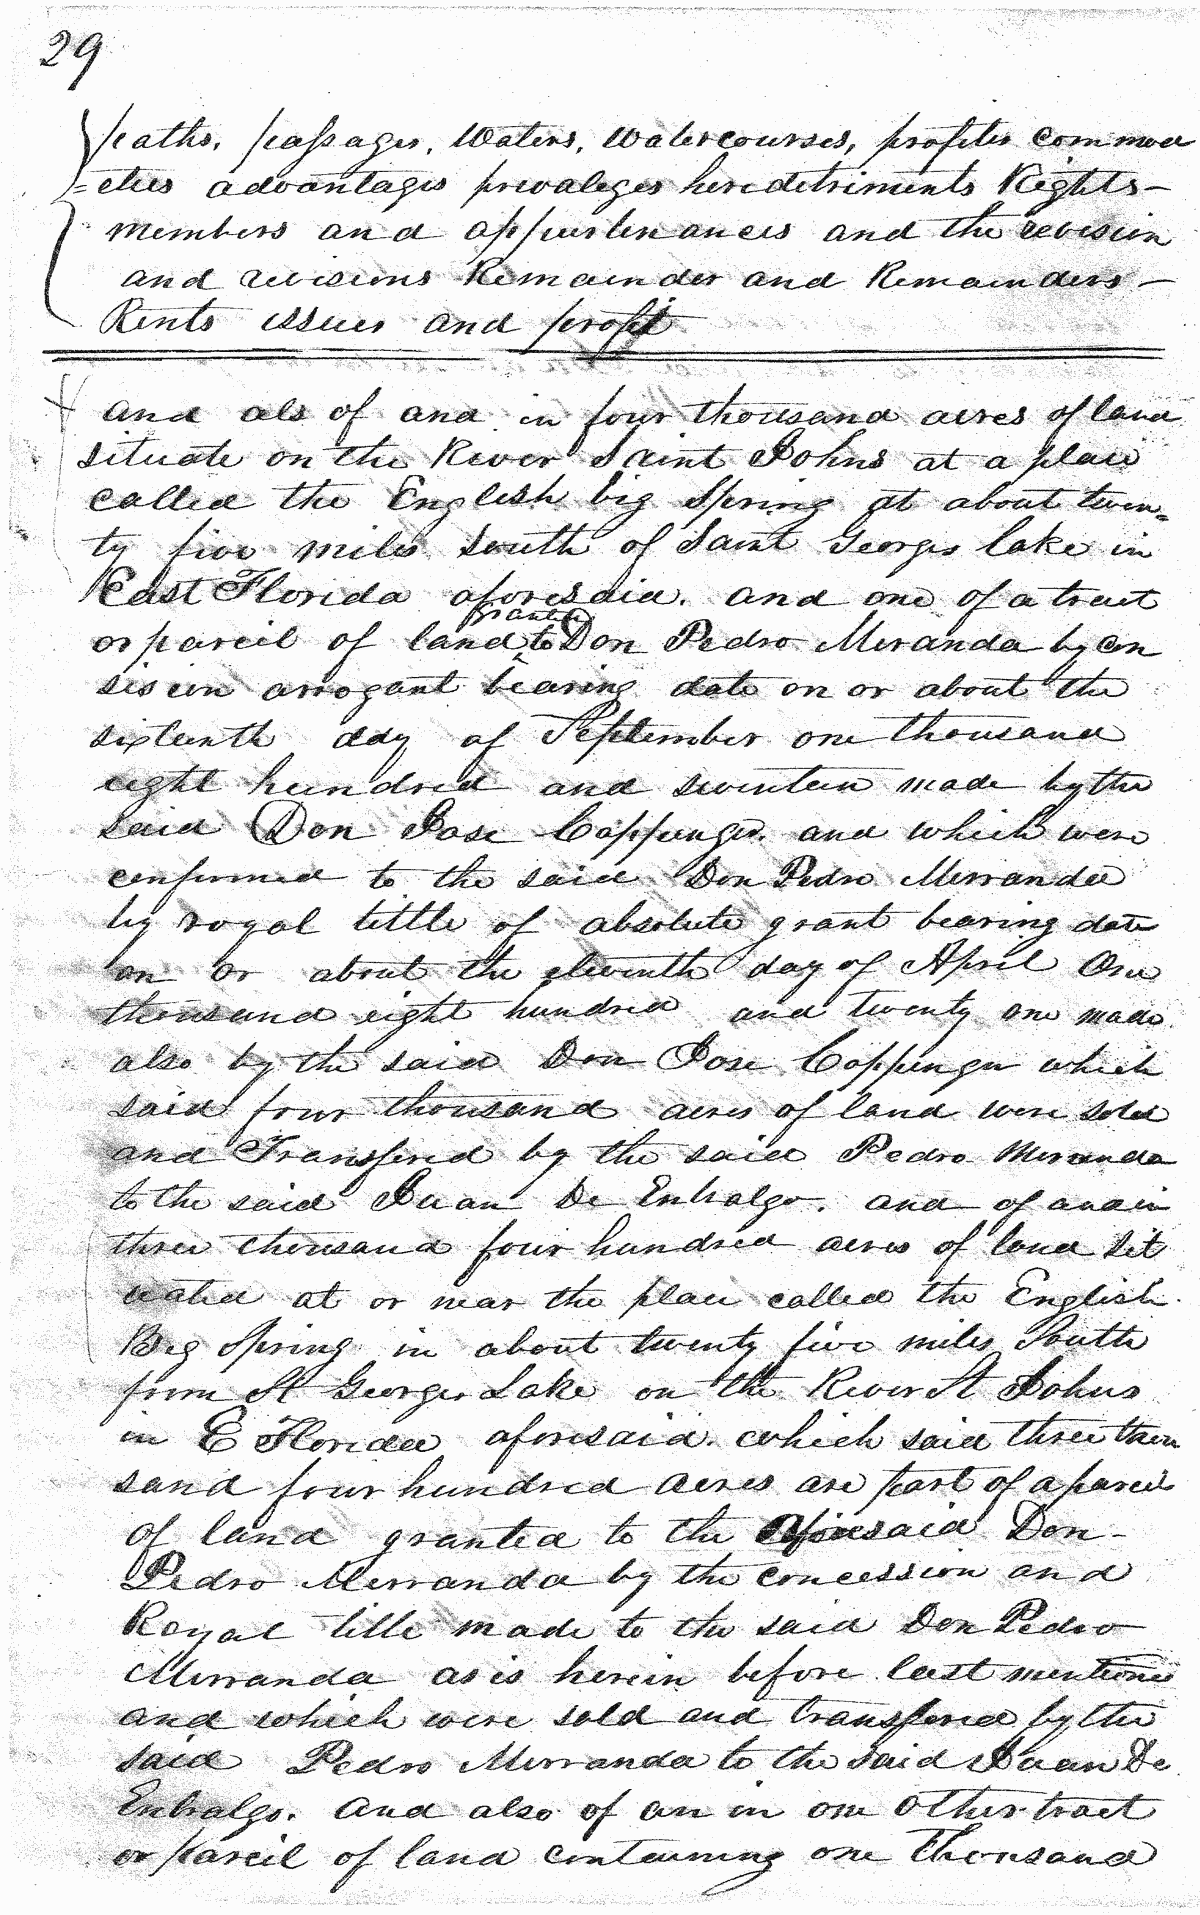 29
paths, passages, Waters, Watercourses, profites commod
=eties advantages prevaleges heredetriments Rights—
members and appurtenances and the revision
and revisions Remainder and Remainders—
Rents issues and profit
And als of and in four thousand acres of land
situate on the River Saint Johns at a place
called the English big Spring at about twen=
ty five miles South of Saint Georges lake in
East Florida aforesaid. and one of a tract
granted
or parceil of land to Don Pedro Miranda by con
sis ion arrogant bearing date on or about the
sixteenth day of September one thousand
eight hundred and seventeen made by the
said Don Jose Coppinger. and which were
confirmed to the said Don Pedro Mirranda
by royal tittle of absolute grant bearing date
on or about the eleventh day of April One
thousand eight hundred and twenty one made
also by the said Don Jose Coppinger which
said four thousand acres of land were sold
and Transfered by the said Pedro Miranda
to the said Juan De Entralgo. and of and in
three thousand four hundred acres of land sit
uated at or near the place called the English
Big Spring in about twenty five miles South
from St Georges Lake on the River St Johns
in E Florida aforesaid. which said three thou
sand four hundred acres are part of a parceil
of land granted to the aforesaid Don-
Pedro Mirranda by the concession and
Royal title made to the said Don Pedro
Mirranda as is herein before last mentioned
and which were sold and transfered by the
said Pedro Mirranda to the said Juan De
Entralgo. And also of an in one other tract
or parceil of land containing one Thousand